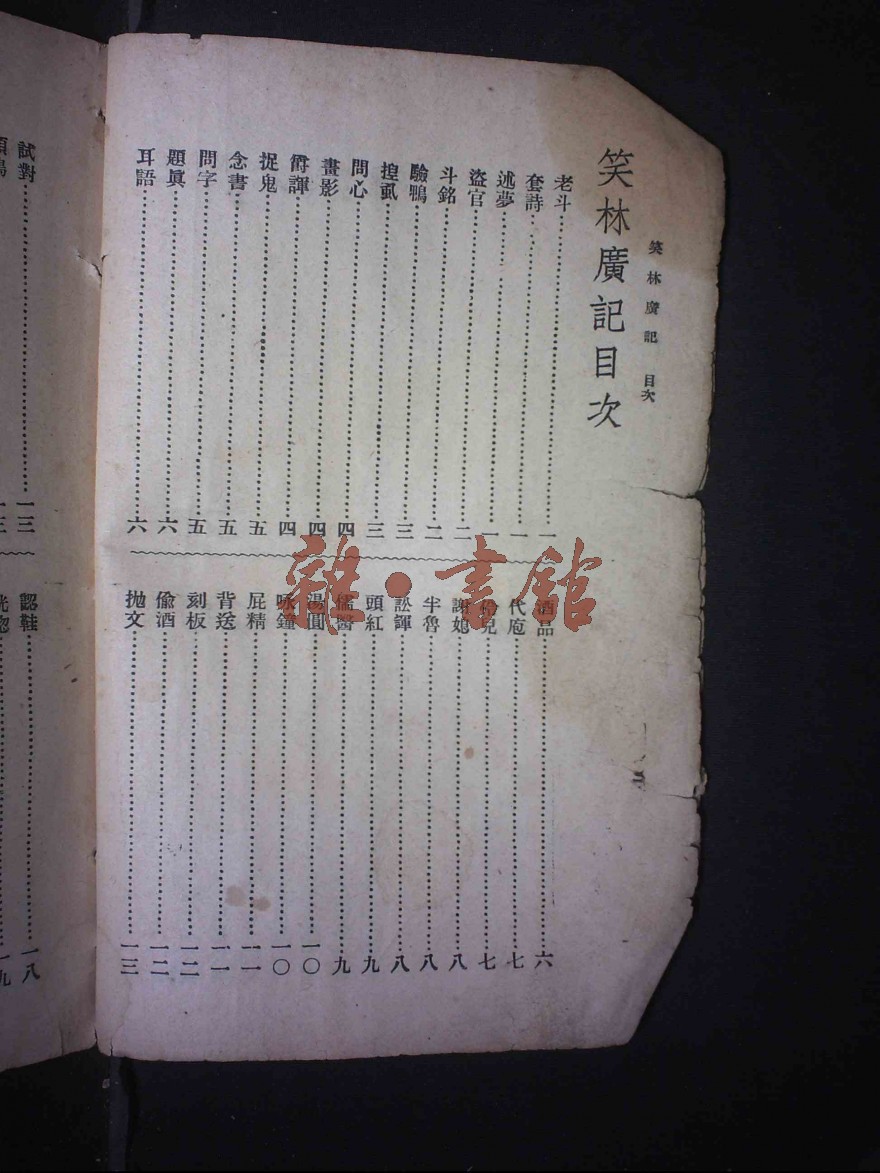 笑林廣記 目次
笑林廣記目次
老斗一
套詩一
述夢一
盜官一
斗銘二
驗鴨三
揘虱三
問心四
畫影四
爵譚四
捉鬼五
念書五
問字五
題眞六
耳語六
酒品六
代庖七
兒七
謝媳八
半魯八
訟錘八
頭紅九
儒醫九
湯圓一〇
咏鐘一〇
屁精一一
背送一一
刻板一二
偷酒一二
抛文一三
試對一三
認鞋一八
雜·書館